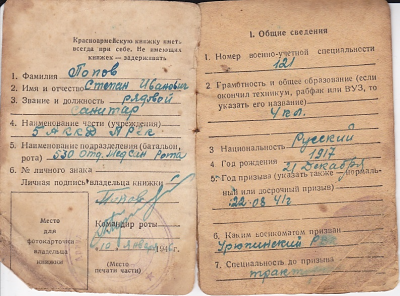 Красноармейскую книжку иметь
всегда при себе. Не имеющих
книжек — задерживать
1. Фамилия Попов
2. Имя и отчество Степан Иванович
3. Звание и должность рядовой
санитар
4. Наименование части (учреждения)
5
5. Наименование подразделения (батальон,
рота) 530 Отд. Медсан Рота
6. № личного знака
Личная подпись владельца книжки
Попов
Место
для
фотокарточки
владельца
книжки
Командир роты
(Место
печати части)
I. Общие сведения
1. Номер военно-учетной специальности
121
2. Грамотность и общее образование (если
окончил техникум, рабфак или ВУЗ, то
указать его название)
4 кл.
3. Национальность Русский
4. Год рождения 1917
21 Декабря
5. Год призыва (указать также — нормаль-
ный или досрочный призыв)
22.08.41г
6. Каким военкоматом призван
Урюпинский РВК
7. Специальность до призыва